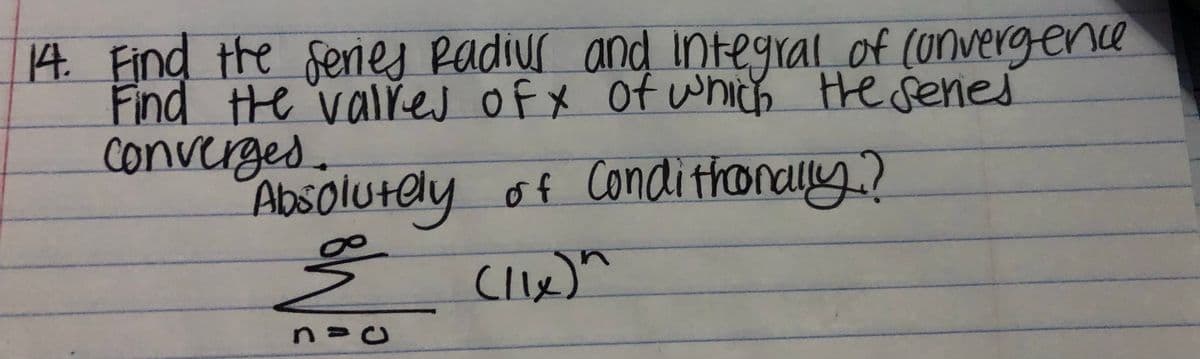 14. Find the series Radius and integral of convergence
Find the valres of x of which the series
converges.
Absolutely of Condithonally?
∞
Σ (11x)ⁿ
n=0